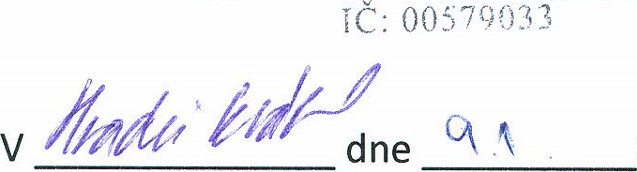 IČ: 00579033
V Hradci Král dne 9.1.